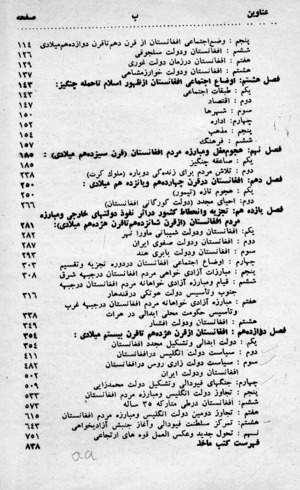 عناوین ب صفحه
پنجم : وضع اجتماعی افغانستان از قرن دهم تا قرن دوازدهم میلادی ۱۱۴
ششم : افغانستان ودولت سلجوقی ۱۲۶
هفتم : افغانستان درزمان دولت غوری
هشتم : افغانستان ودولت خوارزمشاهی ۱۳۷
فصل هشتم: اوضاع اجتماعی افغانستان ازظهور اسلام تاحمله چنگیز: ۱۴۳
یکم : طبقات اجتماعی ۱۴۳
دوم : اقتصاد ۱۴۷
سوم : شهرها
چهارم: اداره ۱۵۲
پنجم : مذهب ۱۵۴
ششم : فرهنگ ۱۵۷
فصل نهم: هجوم مغل ومبارزه مردم افغانستان (قرن سیزدهم میلادی) : ۱۸۵
یکم : صاعقه چنگیز
دوم : تلاش مردم برای زندگی دوباره (ملوک کرت) ۲۳۸
فصل دهم: افغانستان درقرن چهاردهم وپانزده هم میلادی : ۲۵۰
یکم : هجوم تازه (تیمور) ۲۵۰
دوم : احیای مجدد (دولت گورگانی افغانستان) ۲۶۶
فصل یازده هم: تجزیه وانحطاط کشور دراثر نفوذ دولتهای خارجی ومبارزه
مردم افغانستان (ازقرن شانزده هم تاقرن هژده هم میلادی): ۲۸۱
یکم: افغانستان ودولت شیبانی ماورا نهر ۲۸۲
دوم : افغانستان ودولت صفوی ایران ۲۸۷
سوم : افغانستان ودولت بابری هند ۲۹۳
چهارم : اوضاع اجتماعی افغانستان دردوره تجزیه وتقسیم ۳۰۳
پنجم : مبارزات آزادی خواهی مردم افغانستان درجبهه شرق ۳۰۸
ششم : قیام ومبارزه آزادی خواهانه مردم افغانستان درجبهه
جنوب وتاسیس دولت هوتکی درقندهار ۳۱۶
هفتم : مبارزه آزادی خواهانه مردم افغانستان درجبهه غرب
وتاسیس حکومت محلی ابدالی در هرات ۳۳۸
هشتم : افغانستان ودولت افشار ۳۴۹
فصل دوازده هم : افغانستان ازقرن هژده هم تاقرن بیستم میلادی : ۳۵۴
یکم : دولت ابدالی وتشکیل مجدد افغانستان ۳۵۴
دوم : سیاست دولت انگلیس درافغانستان ۴۱۱
سوم : سیاست دولت زاری روس درافغانستان ۴۸۷
افغانستان ودولت ایران ۵۰۲
چهارم: جنگهای فیودالی وتشکیل دولت محمدزایی ۵۰۹
پنجم : تجاوز دولت انگلیس ومبارزه مردم افغانستان ۵۳۳
ششم : افغانستان درطی متارکه ۳۵ ساله ۵۷۳
هفتم : تجاوز دومین دولت انگلیس ومبارزه مردم افغانستان ۶۱۵
هشتم: تمرکز سلطنت فیودالی وآغاز جنبش آزادیخواهی ۶۴۳
نهم : تحول جدید وعکس العمل قوه های ارتجاعی ۷۵۱
فهرست کتب ماخذ ۸۳۸